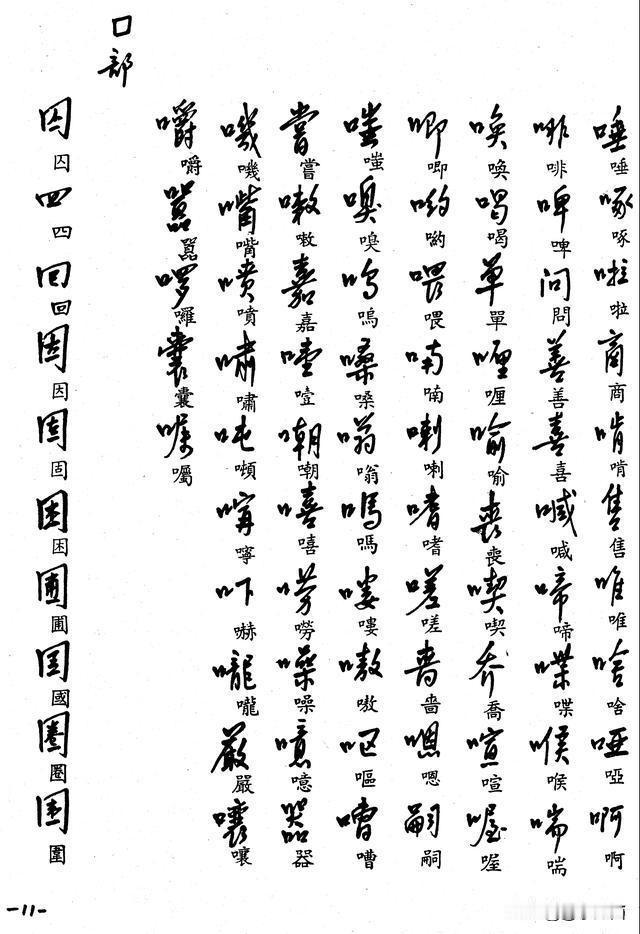 唾唾啄啄啦啦商商啃啃售售唯唯啥啥啞啞啊啊
啡啡啤啤问問善善喜喜喊喊啼啼喋喋喉喉喘喘
喚喚喝喝单單喱喱喻喻喪喪喫喫乔喬喧喧喔喔
唧唧喲喲喂喂喃喃喇喇嗜嗜嗟嗟嗇嗇嗯嗯嗣嗣
嗤嗤嗅嗅嗚嗚嗓嗓嗡嗡嗎嗎嘍嘍嗷嗷呕嘔嘈嘈
嘗嘗嗽嗽嘉嘉噎噎嘲嘲嘻嘻唠嘮噪噪噫噫器器
嘰嘰嘴嘴噴噴嘯嘯吨噸嚀嚀吓嚇嚨嚨嚴嚴嚷嚷
嚼嚼囂囂啰囉囊囊嘱囑
口部
囚囚四四回回因因固固困困圃圃国國圈圈圍圍
-11-